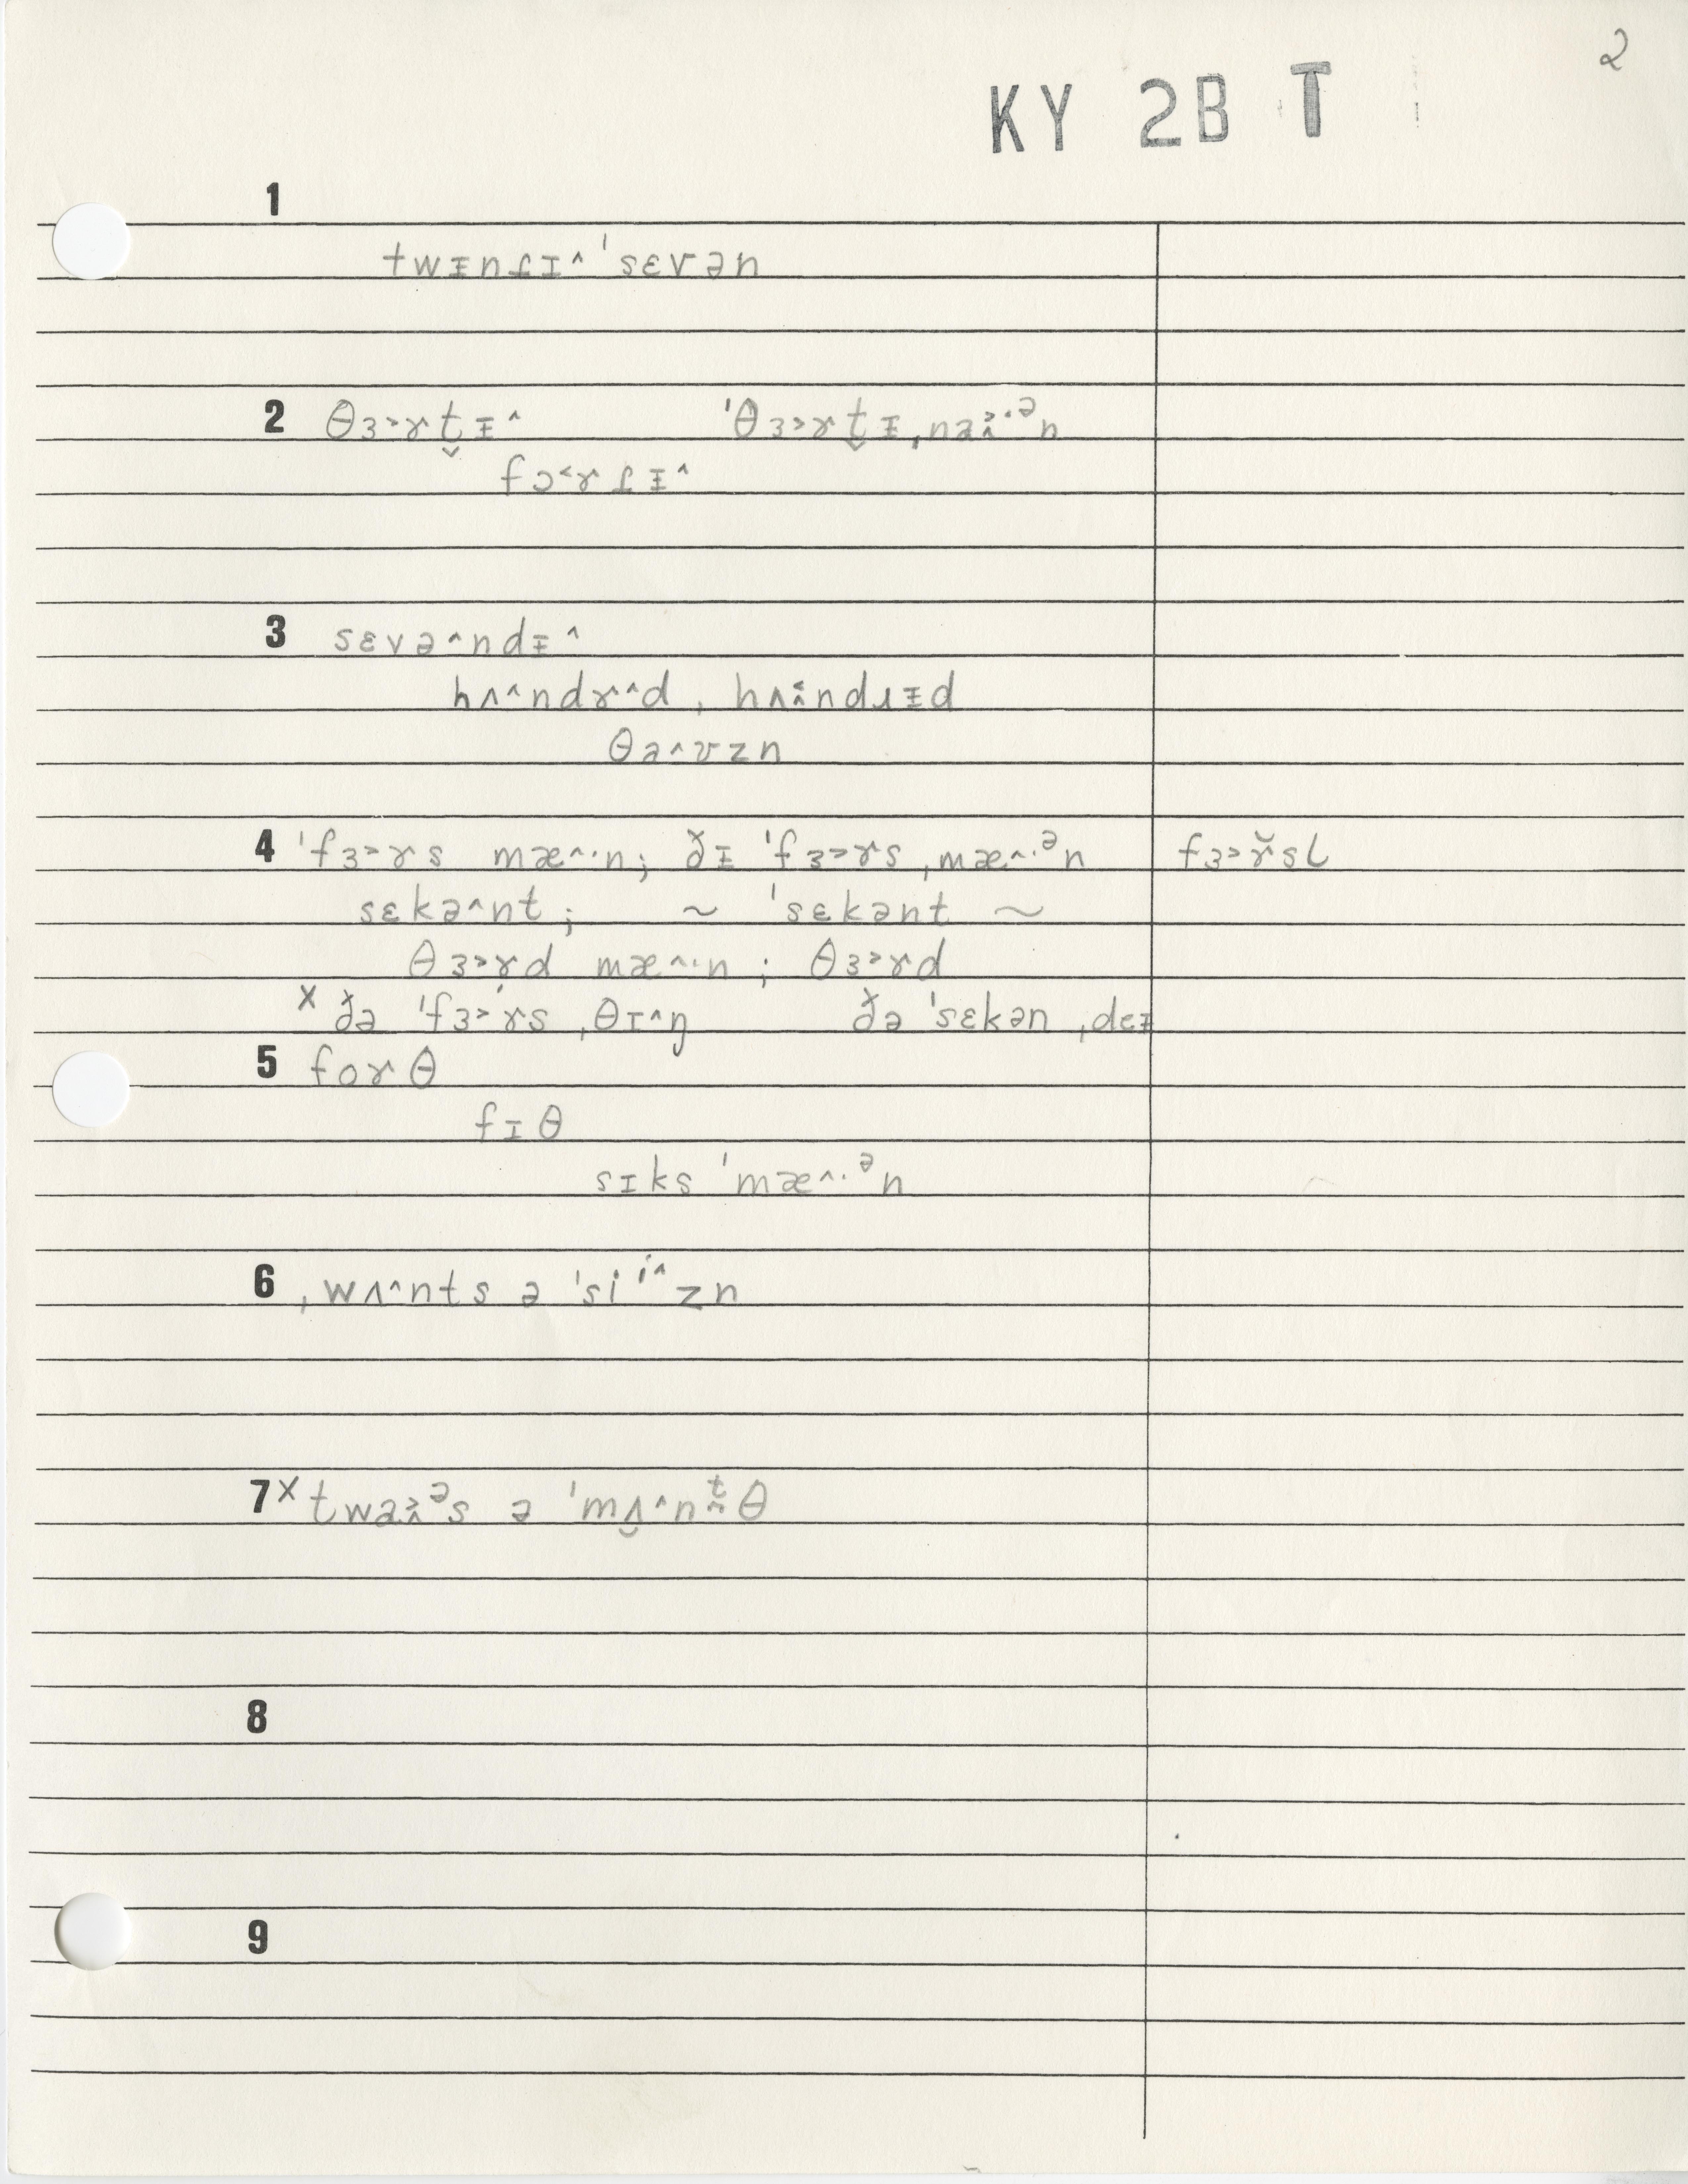 2
KY 2B T
1
twᵻnɾɪ^ ˈsɛvən
2 θɜ˃ɤt̬ᵻ^ ˈθɜ˃ɤt̬ᵻˌnaɪ̭˃·ᵊn
fɔ˂ɤɾᵻ^
3 sɛvə^ndᵻ^
hʌ^ndɤ^d, hʌ^˂ndɹᵻd
θa^ʊzn
4 ˈfɜ˃ɤs mæ^·n; ðᵻ ˈfɜ˃ɤsˌmæ^·ᵊn fɜ˃ɤ̆sl
sɛkə^nt; ~ ˈsɛkənt ~
θɜ˃ɤd mæ^·n; θɜ˃ɤd
x ðə ˈfɜ˃ɤs ˌθɪ^ŋ ðə ˈsɛkən ˌdeᵻ
5 foɤθ
fɪθ
sɪks ˈmæ^·ᵊn
6 ˌwʌ^nts ə ˈsiⁱ^zn
7 x twaɪ̭˃ᵊs ə ˈmʌ̮^nᵗ̰θ
8
9